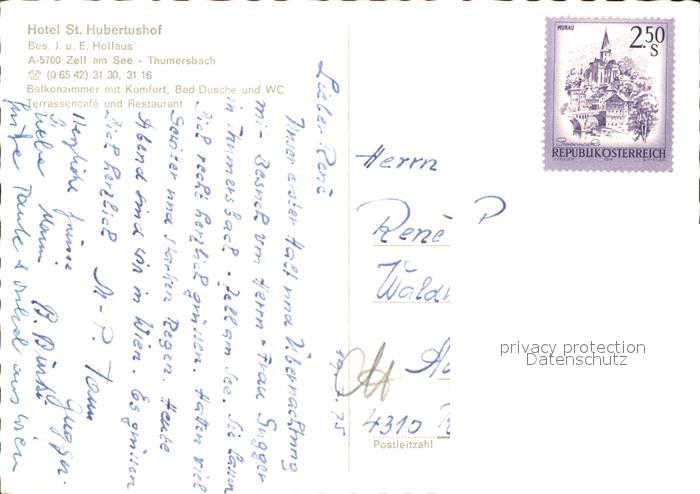 Hotel St. Hubertushof
Bes. J. u. E. Hollaus
A-5700 Zell am See - Thumersbach
☎ (0 65 42) 31 30, 31 16
Balkonzimmer mit Komfort, Bad-Dusche und WC
Terrassencafé und Restaurant
Lieber René
Unser erster Halt und Übernachtung
mit Besuch von Herrn + Frau Gugger
in Thumersbach - Zell am See. Sie lassen
Dich recht herzlich grüssen. Hatten viel
Gewitter und starken Regen. Heute
Abend sind wir in Wien. Es grüssen
Dich herzlich M-P.
Herzliche Grüsse
Gugger
B.
liebe
Tante & Onkel aus Wien
MURAU
2.50
S
REPUBLIK ÖSTERREICH
Herrn
René P
Waldh
4310 R
75
Postleitzahl
privacy protection
Datenschutz